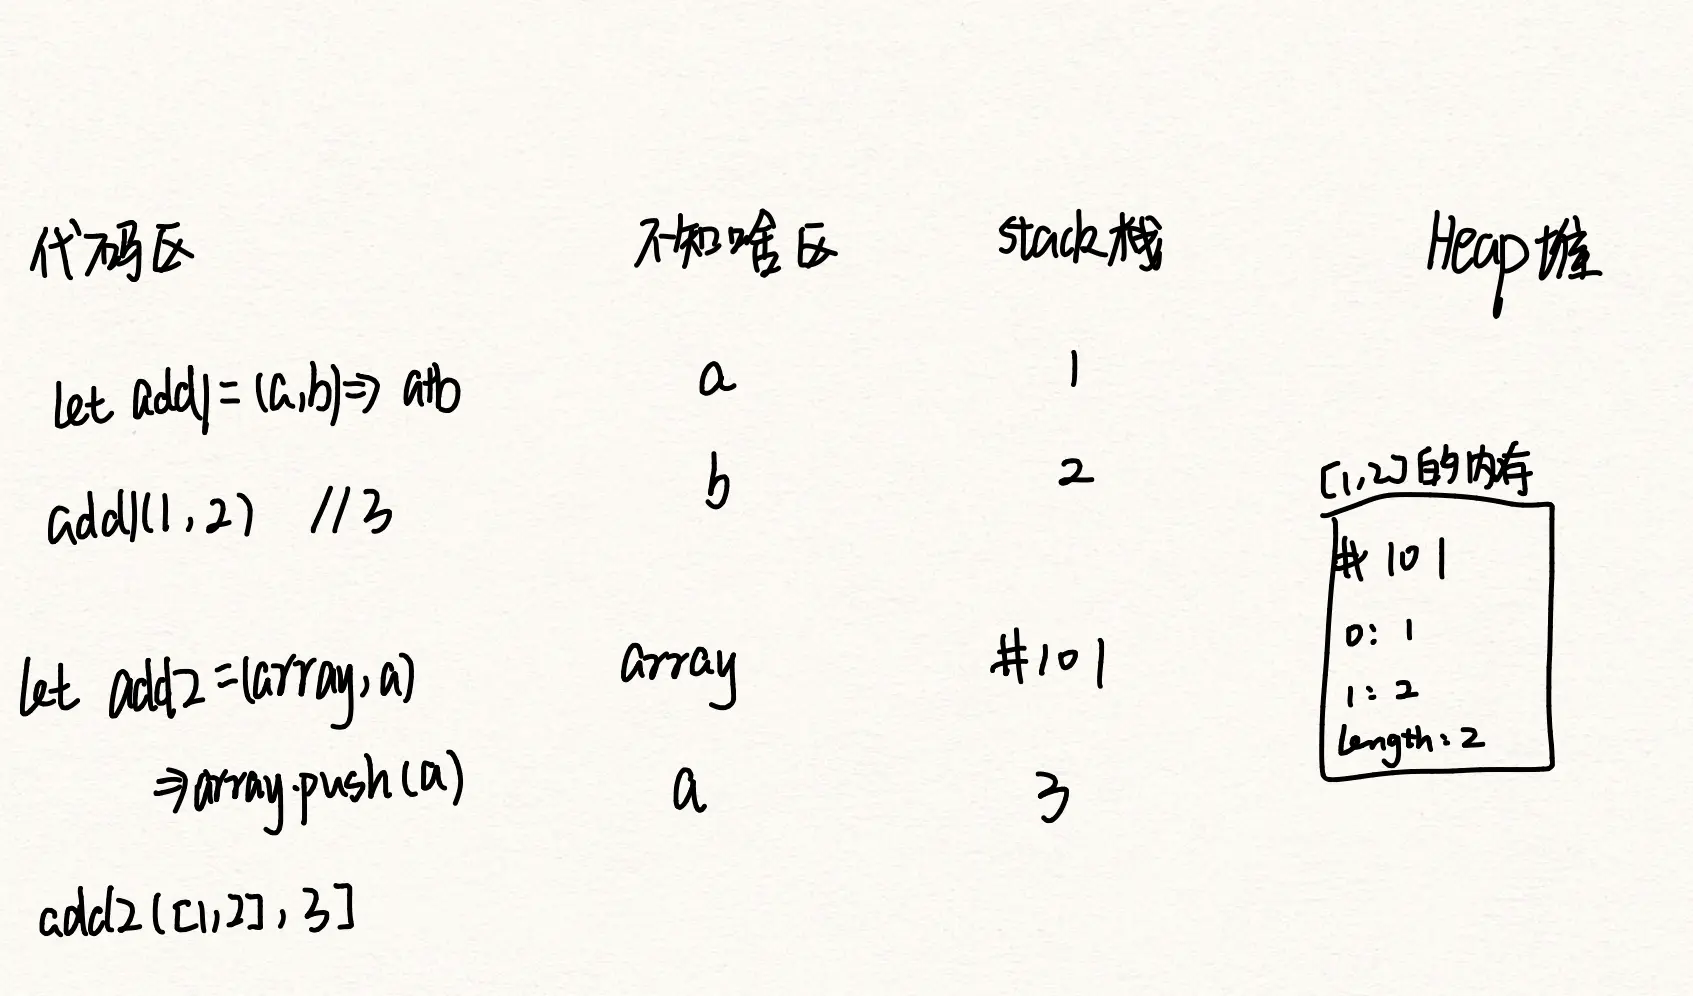 代码区 不知啥区 stack栈 Heap堆
let add1=(a,b)=> a+b a 1
add1(1,2) //3 b 2
[1,2]的内存
#101
0: 1
1: 2
length: 2
let add2=(array,a) array #101
=>array.push(a) a 3
add2([1,2],3]